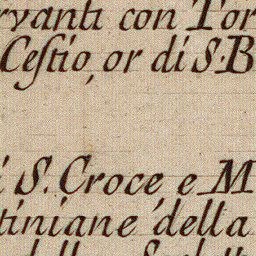 rvanti con Tor
Cestio, or di S. B
i S. Croce, e M
tiniane della